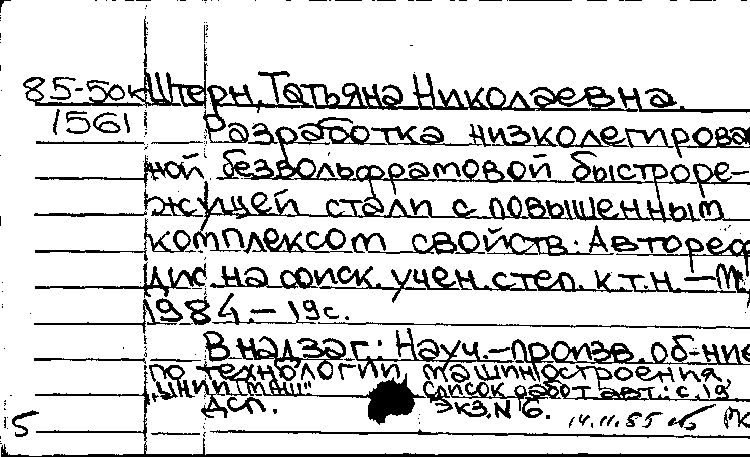 85-50к Штерн, Татьяна Николаевна.
1561 Разработка низколегирован
ной безвольфрамовой быстроре-
жущей стали с повышенным
комплексом свойств: Автореф
дис. на соиск. учен. степ. к.т.н. — М.,
1984. — 19с.
В надзаг.: Науч.-произв. об-ние
по технологии машиностроения
„ЦНИИТМАШ" Список работ авт.: с. 19
ДСП. Экз. № 6. 14.11.85
5